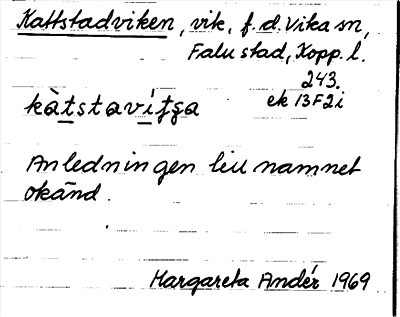 Kattstadviken, vik, f.d. Vika sn,
Falu stad, Kopp. l.
243.
ek 13F2i
kàtstavíʈʂa
Anledningen till namnet
okänd.
Margareta Andér 1969